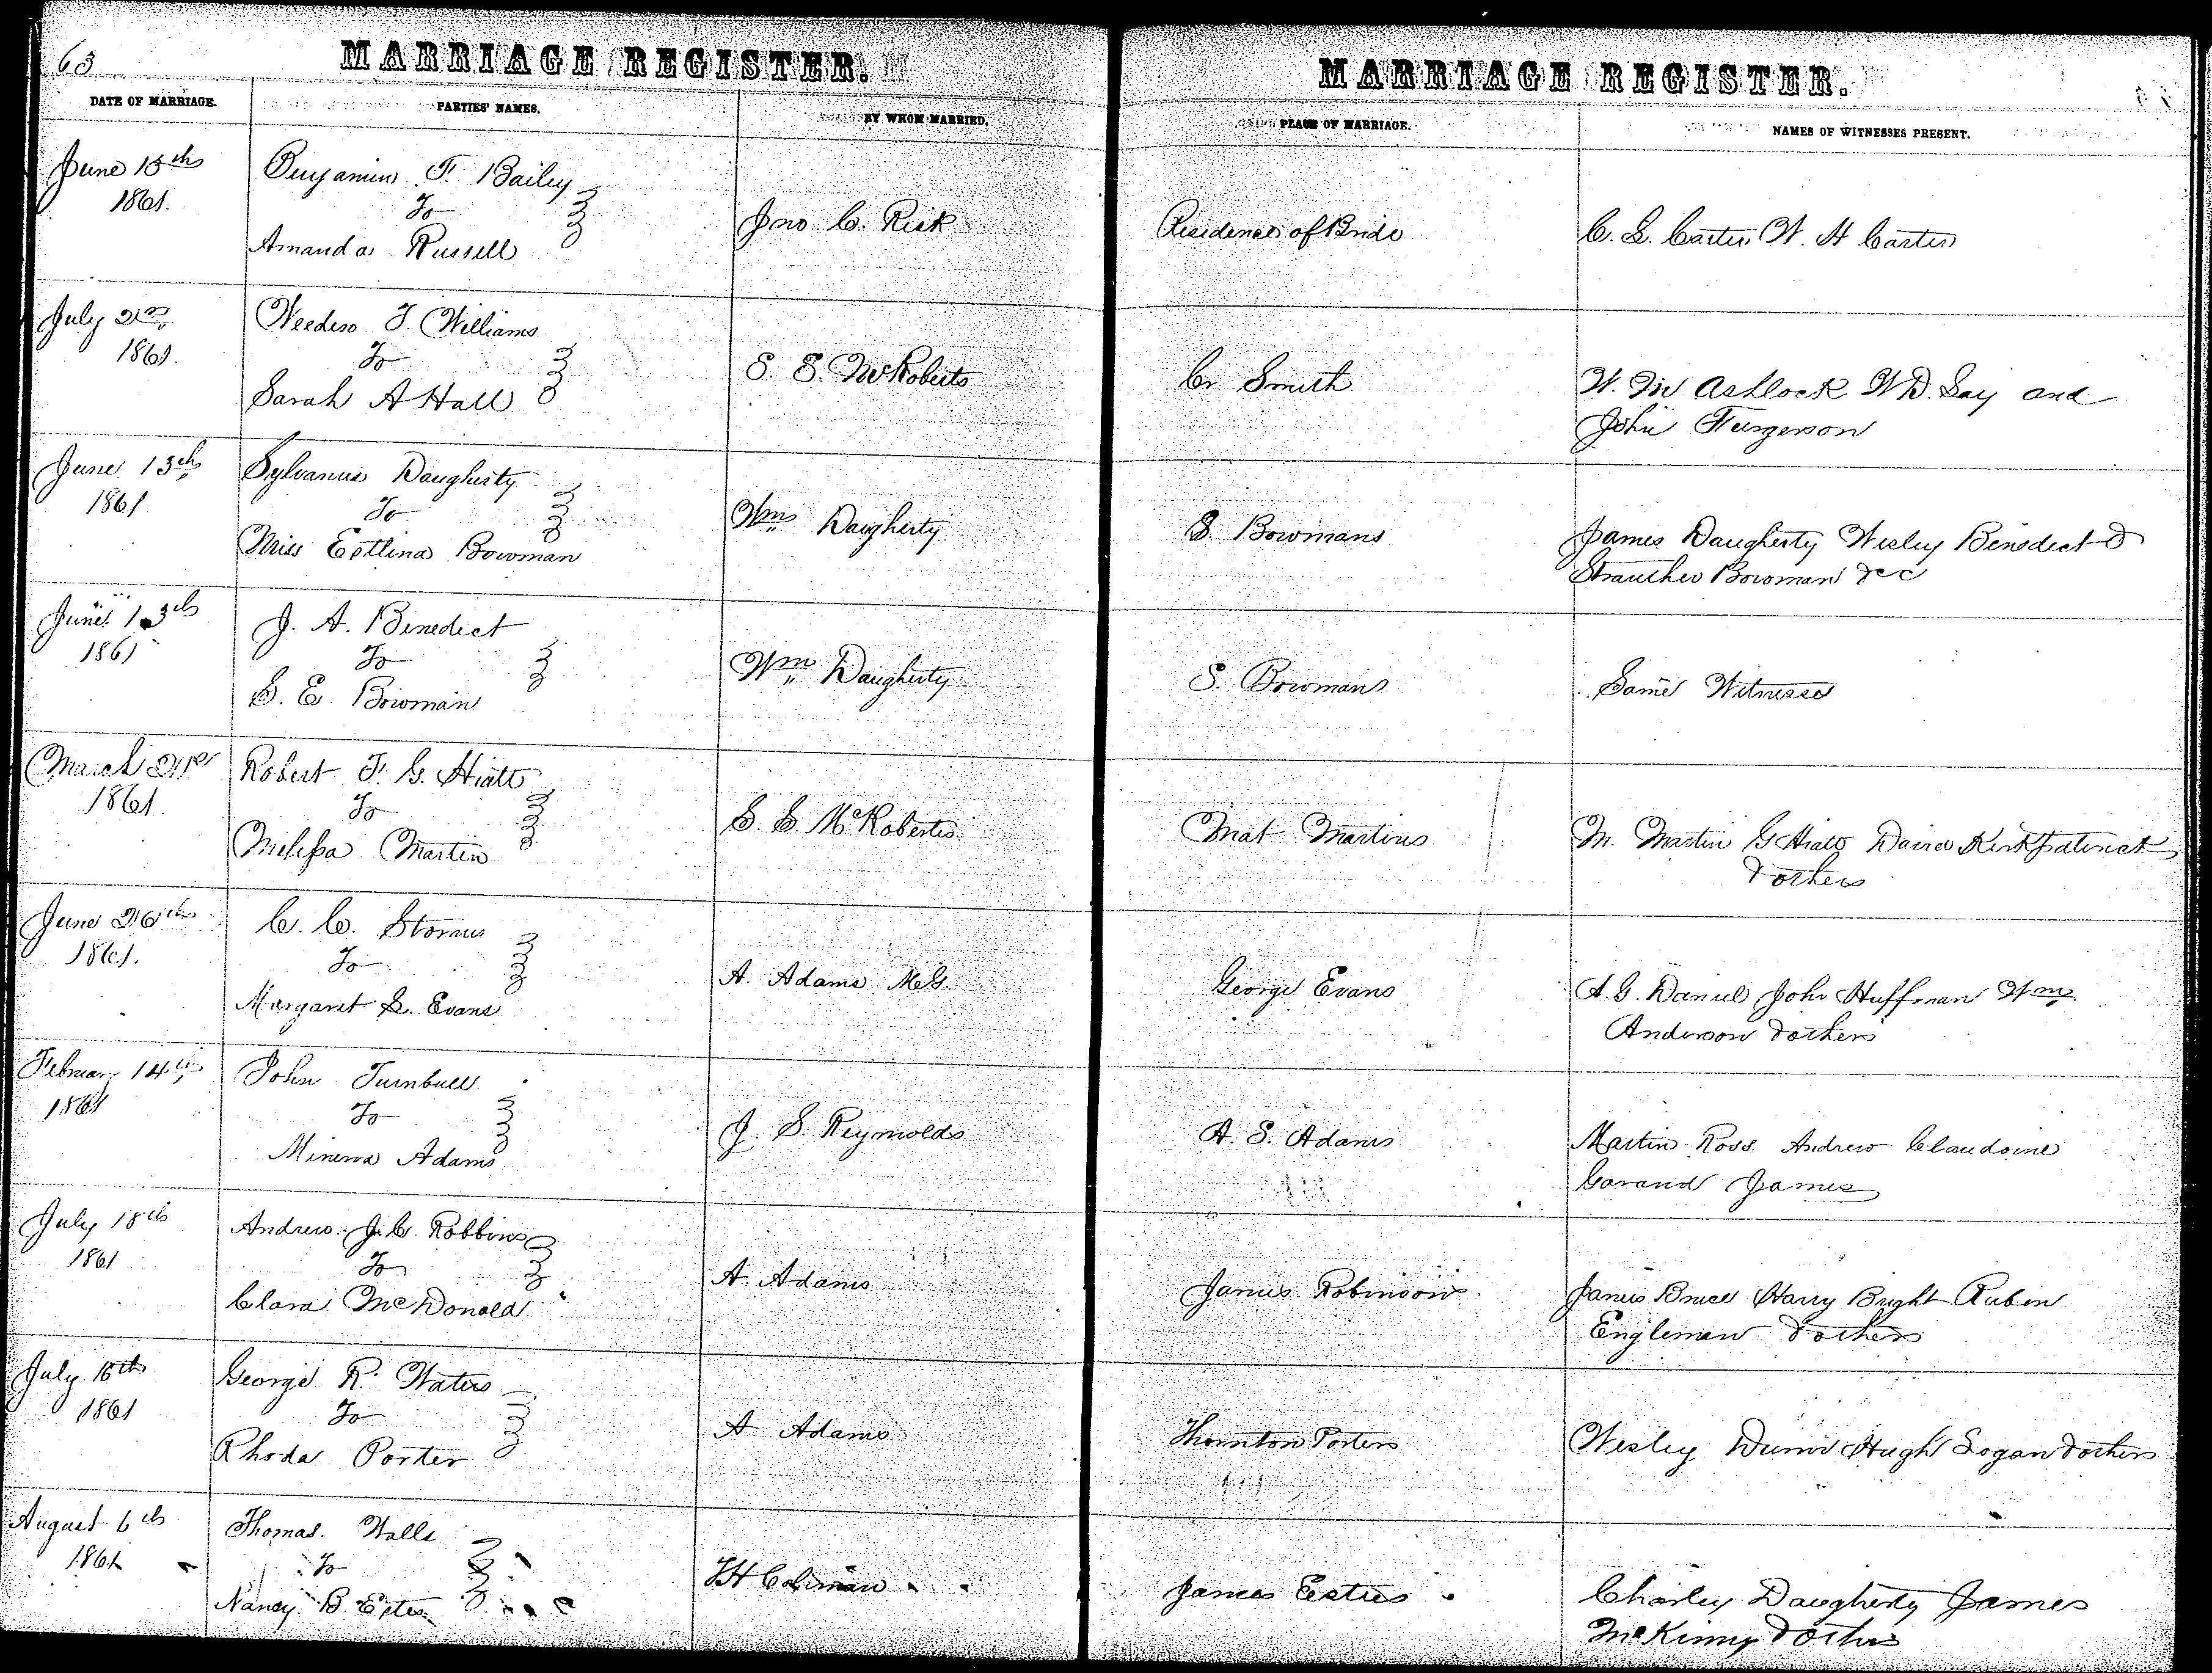 63
MARRIAGE REGISTER.
MARRIAGE REGISTER.
DATE OF MARRIAGE.
PARTIES' NAMES.
BY WHOM MARRIED.
PLACE OF MARRIAGE.
NAMES OF WITNESSES PRESENT.
June 13th
1861.
Benjamin F. Bailey
To
Amanda Russell
Jno C. Rick
Residence of Bride
C. S. Carter W. H Carter
July 2nd
1861.
T. Williams
To
Sarah A Hall
S. S. McRoberts
Smith
W. M Ashlock W D. Lay and
John Furgerson
June 13th
1861
Sylvanus Daugherty
To
Miss Bowman
Wm Daugherty
S Bowmans
James Daugherty Wesley Benedict &
Strauther Bowman &c
June 13th
1861
J. A. Benedict
To
S. E. Bowman
Wm Daugherty
S. Bowmans
Same Witnesses
March 21st
1861.
Robert F. G. Hiatt
To
Melissa Martin
S. S. McRoberts
Mat Martins
M. Martin G Hiatt David Kirkpatrick
& others
June 26th
1861.
C. C. Stormes
To
Margaret S. Evans
A. Adams M.G.
George Evans
A. G. Daniel John Huffman Wm
Anderson & others
Februar 14th
1861
John Turnbull
To
Minerva Adams
J. S. Reynolds
A. S. Adams
Martin Ross. Andrew
James
July 18th
1861
Andrew J. C. Robbins
To
Clara McDonald
A. Adams
James Robinson
James Bruce Harry Bright Ruben
Engleman & others
July 18th
1861
George R. Waters
To
Rhoda Porter
A Adams
Thornton Porters
Wesley Dunn Hugh Logan & others
August 6th
1861
Thomas. Walls
To
Nancy B. Estes
James Estes
Charley Daugherty James
McKinny & others